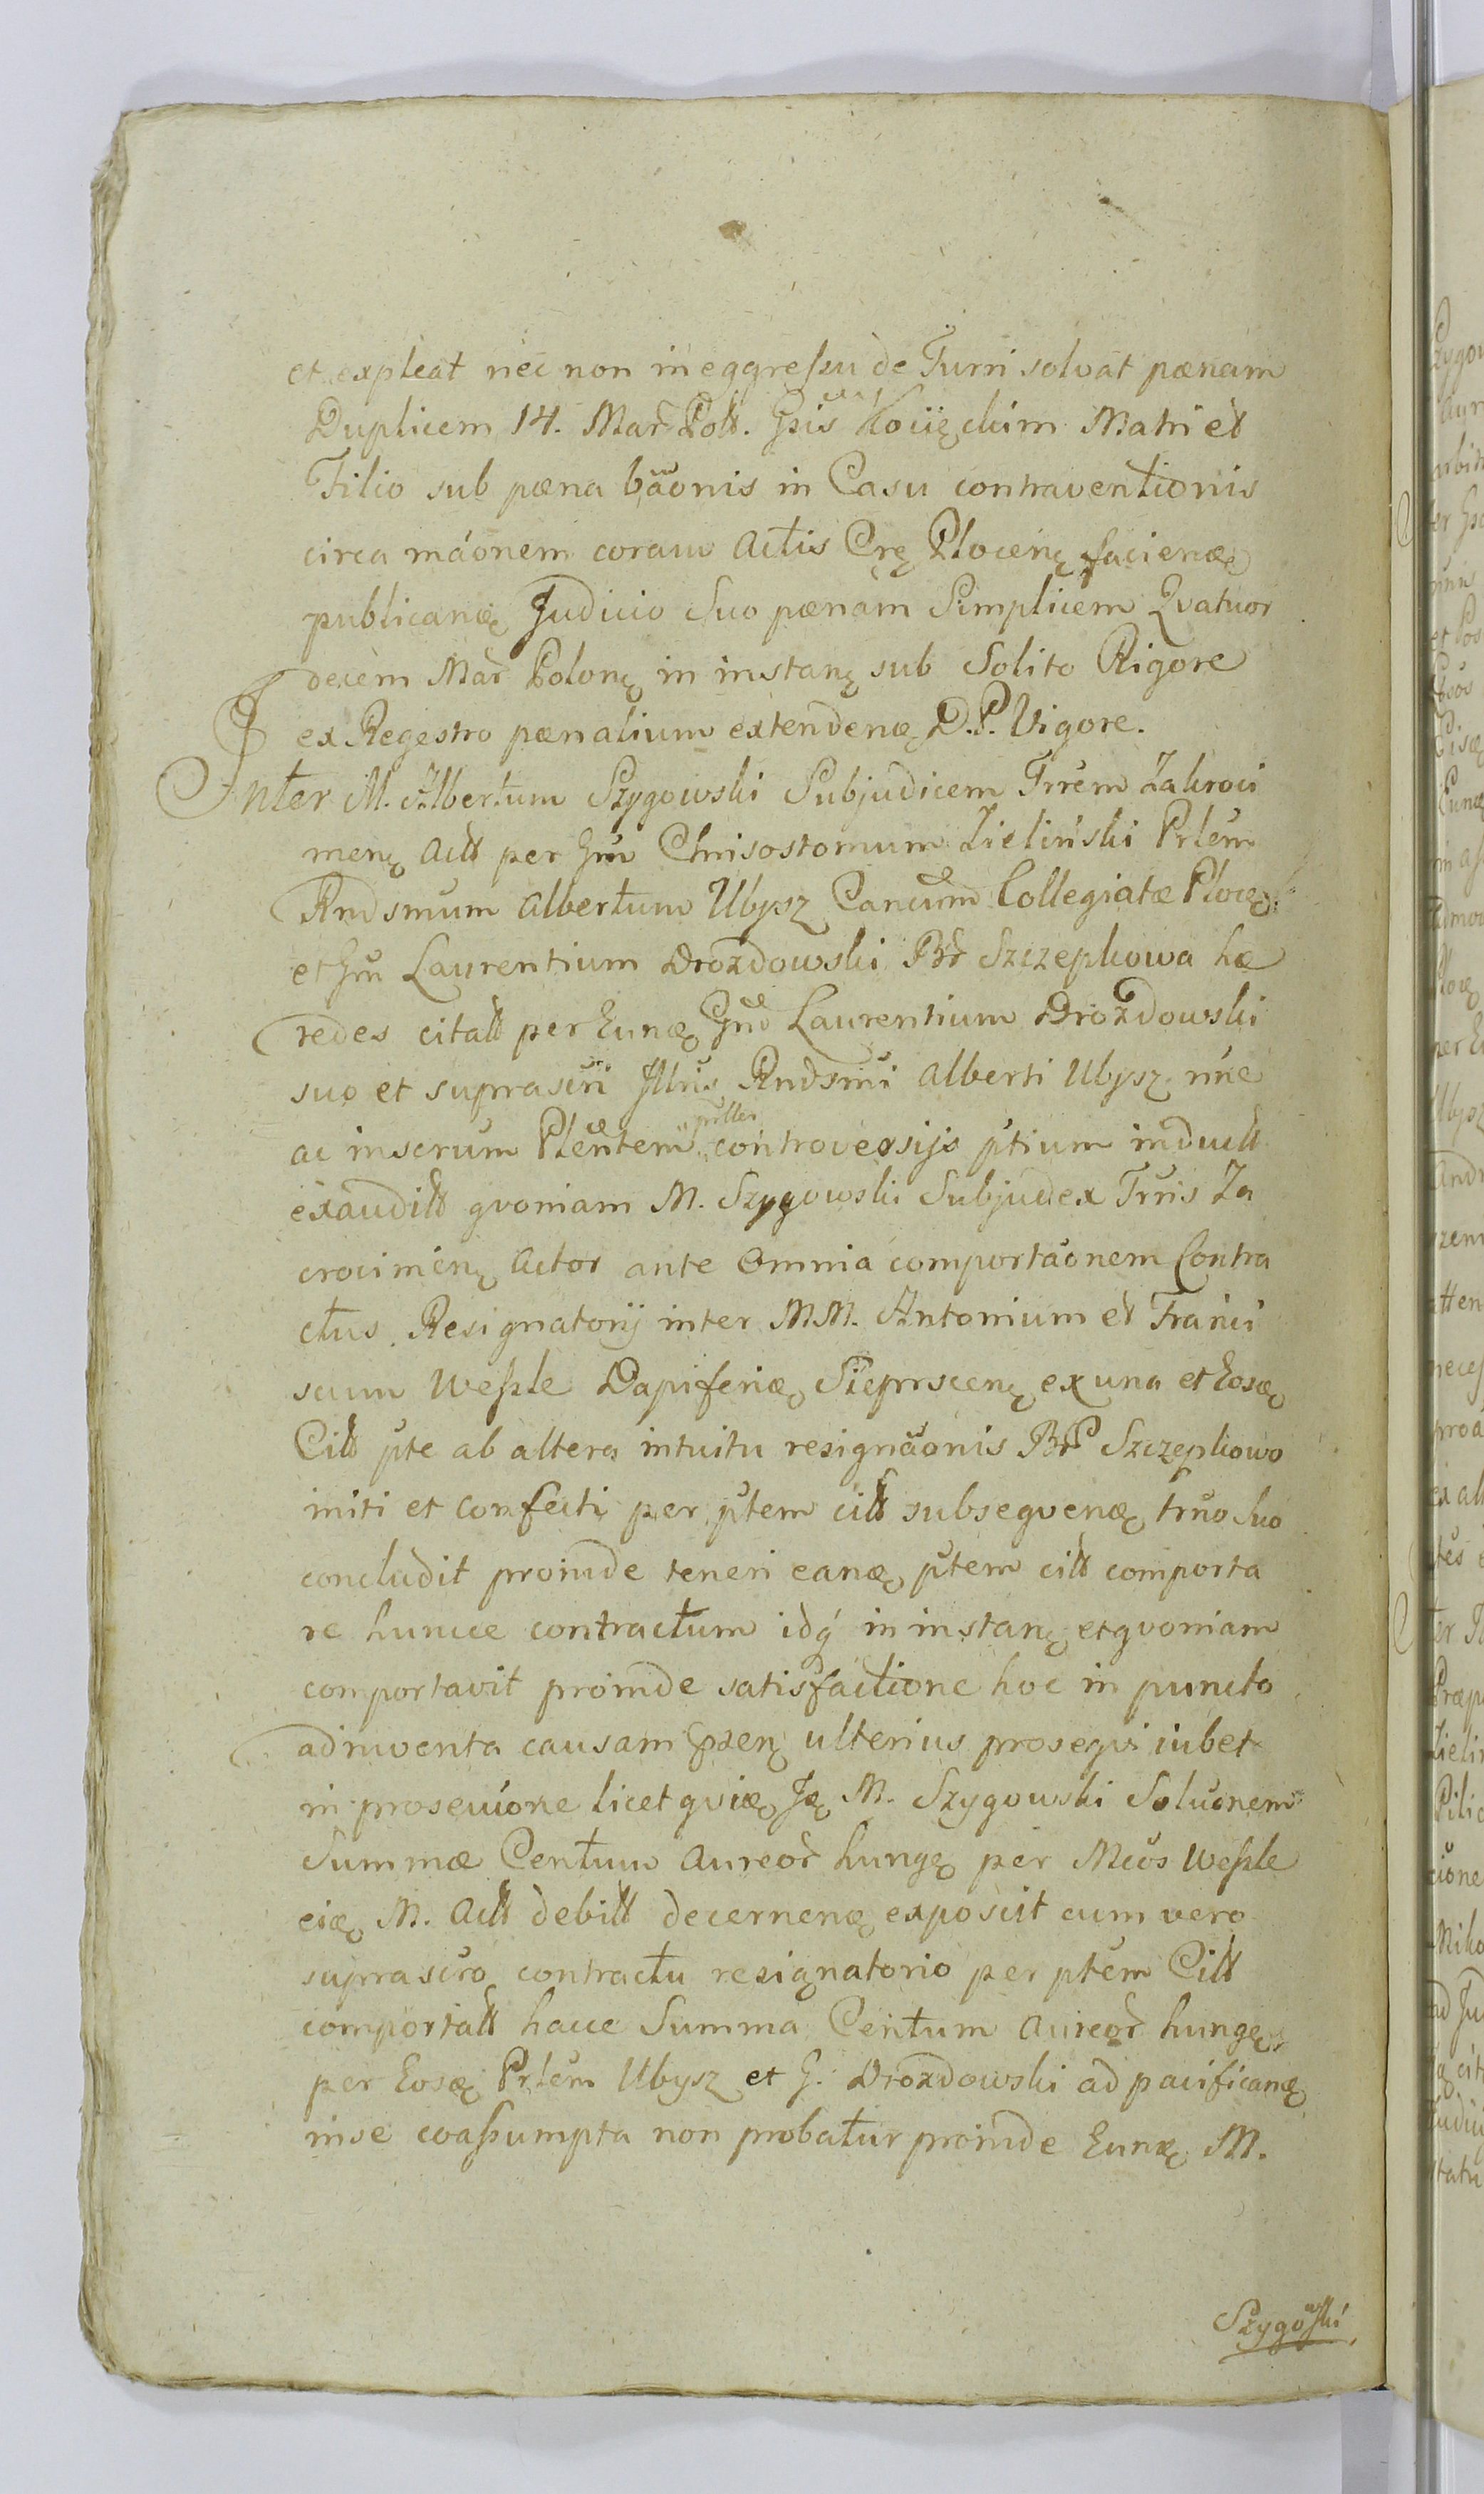 et expleat nec non in eggreſsu de Turri solvat pœnam
Duplicem 14. Mar Poll. Gsis Kocięckim Matri et
Filio sub pœna bãonis in Casu contraventionis
circa mãonem coram Actis Crę Plocenę facienæ
publicanæ Judicio Suo pœnam Simplicem Qvatuor
decem Mar Polonę in instanę sub Solito Rigore
ex Regestro pœnalium extendenæ D.P. Vigore.
Inter M. Albertum Szygowski Subjudicem Trrem Zakroci
menę Actt per Gm Chrisostomum Zieliński Prlem
Rndsmum Albertum Ubysz Cancum Collegiatæ Plocę
et Gm Laurentium Drozdowski Br Szczepkowa hæ
redes citatt per Eunæ Gnd Laurentium Drozdowski
suo et suprascri Illris Rndsmi Alberti Ubysz nne
ac inscrum Plentem controversijs ptium induct
exauditt qvoniam M. Szygowski Subjudex Trris Za
crocimenę Actor ante Omnia comportãonem Contra
ctus Resignatorij inter MM. Antonium et Franci
scum Weſsle Dapiferiæ Sieprscenę ex una et Eosæ
Citt pte ab altera intuitu resignãonis Br Szczepkowo
initi et confecti per ptem citt subseqvenæ trno suo
concludit proinde teneri eanæ ptem citt comporta
re huncce contractum idq́ in instanę et qvoniam
comportavit proinde satisfactione hoc in puncto
adinventa causam pzenę ulterius prosegvi iubet
in prosecuõne licet qviæ Jæ M. Szygowski Soluõnem
Summæ Centum Aureor hungę per Mcos Weſsle
eiæ M. Actt debitt decernenæ exposcit cum vero
suprascro contractu resignatorio per ptem Citt
comportatt hacce Summa Centum Aureor hungę
per Eosæ Prlem Ubysz et G. Drozdowski ad pacificanæ
inse coaſsumpta non probatur proinde Eunæ M.
Szygowski